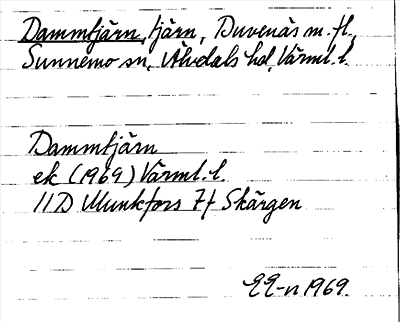 Dammtjärn, tjärn, Duvenäs m. fl.
Sunnemo sn, Älvdals hd, Värml. l.
Dammtjärn
ek (1969) Värml. l.
11D Munkfors 7f Skärgen
EE-n 1969.